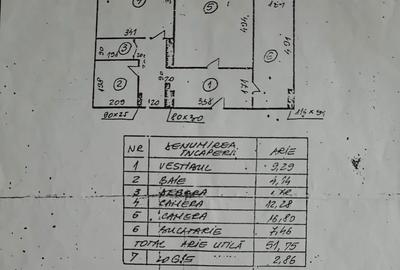 4
5
121
341
3
90
138
494
6
491
2
198
70
1
171
209
120
338
80x25
80x30
NR DENUMIREA ÎNCAPERII ARIE
1 VESTIBUL 9,29
2 BAIE 4,14
3
4 CAMERA 12,28
5 CAMERA 16,80
6 BUCATARIE 7,46
TOTAL ARIE UTILĂ 51,75
7 LOGIE 2,86